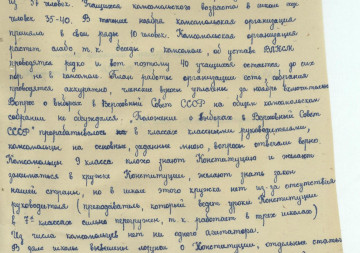 из 57 человек. Учащихся комсомольского возраста в школе еще
человек 35-40. В течение ноября комсомольская организация
приняла в свои ряды 10 человек. Комсомольская организация
растит слабо, т. к. беседы о комсомоле, об уставе ВЛКСМ
проводятся редко и вот поэтому 40 учащихся остается до сих
пор не в комсомоле. План работы организации есть, собрания
проводятся аккуратно, членские взносы уплачены за ноябрь полностью.
Вопрос о выборах в Верховный Совет СССР на общем комсомольском
собрании не обсуждался. Положение о выборах в Верховный Совет
СССР прорабатывалось в классах классными руководителями,
комсомольцы на основные, заданные мною, вопросы отвечали верно.
Комсомольцы 9 класса плохо знают Конституцию и желают
заниматься в кружке Конституции, желают знать закон
нашей страны, но в школе этого кружка нет из-за отсутствия
руководителя (преподаватель, который ведет уроки Конституции
в 7х классах сильно перегружен, т. к. работает в трех школах)
Из числа комсомольцев нет ни одного агитатора.
В зале школы вывешены лозунги о Конституции, отдельные статьи